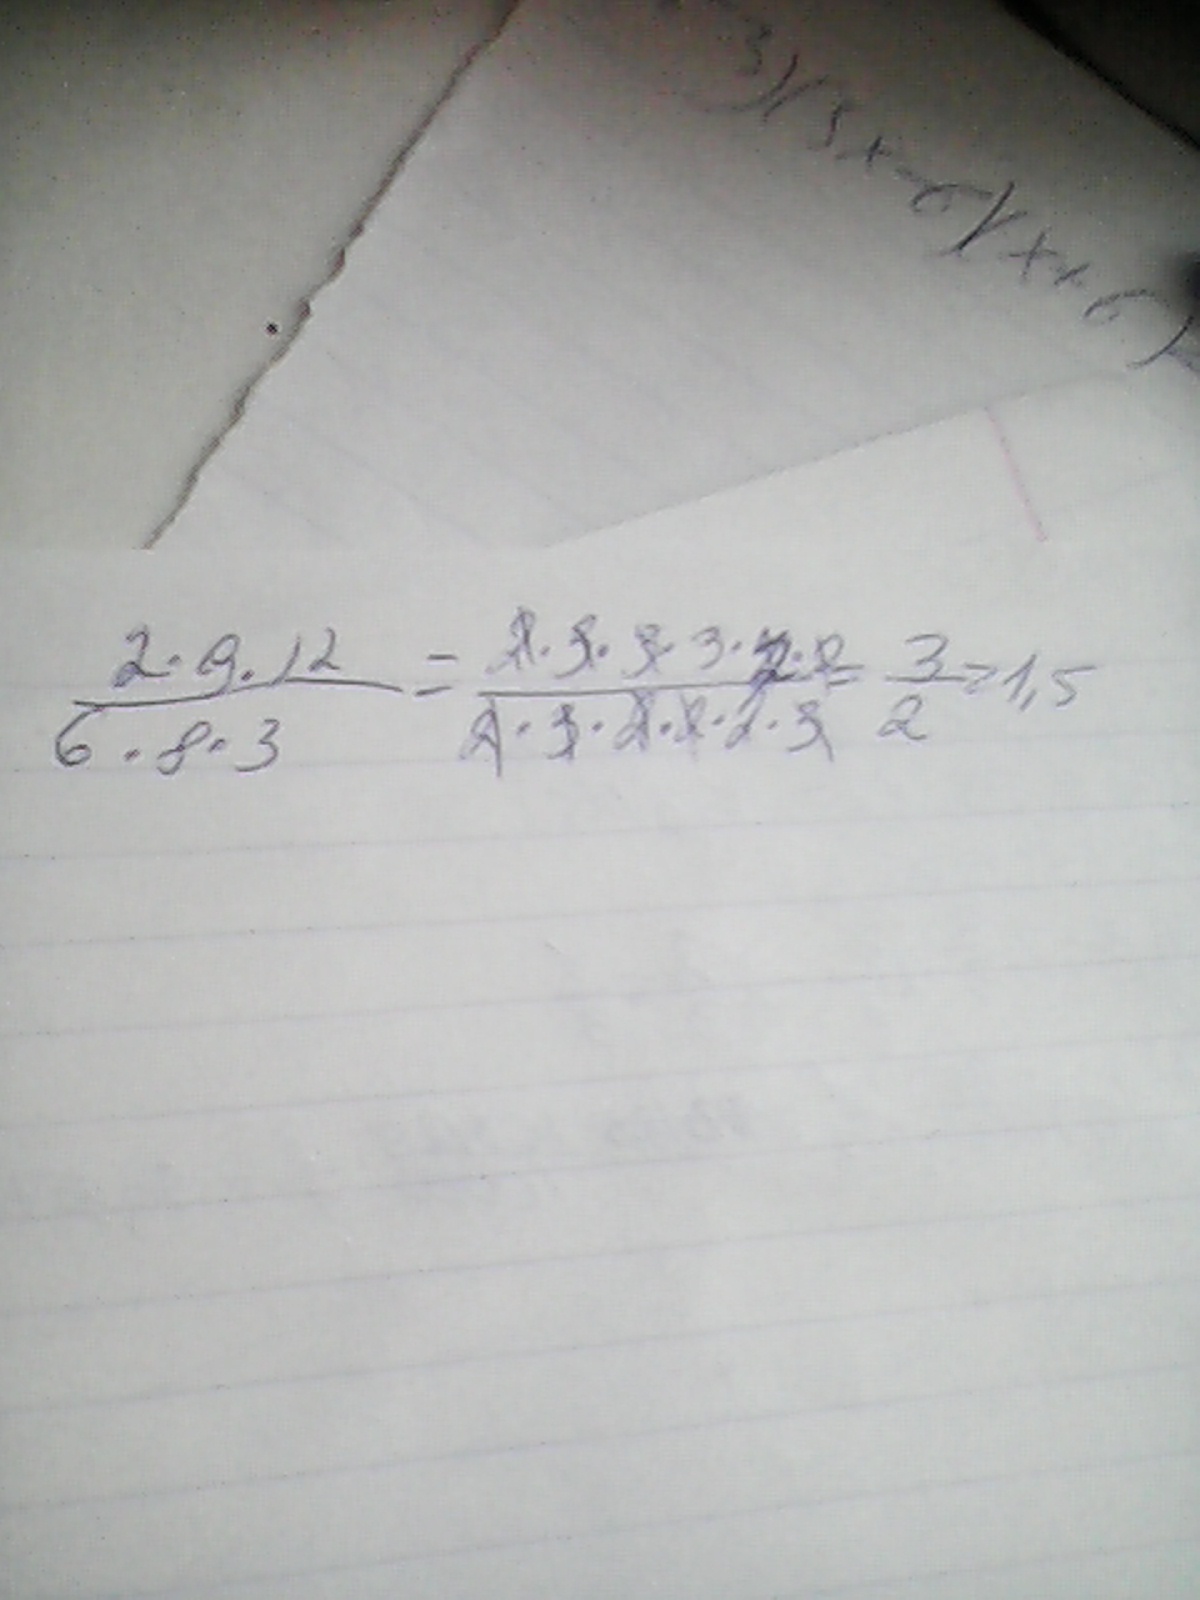 3)(3x-6)(x+6)
2·9·12 / 6·8·3 = 2·3·3·3·2·2 / 2·3·2·2·2·3 = 3/2 = 1,5